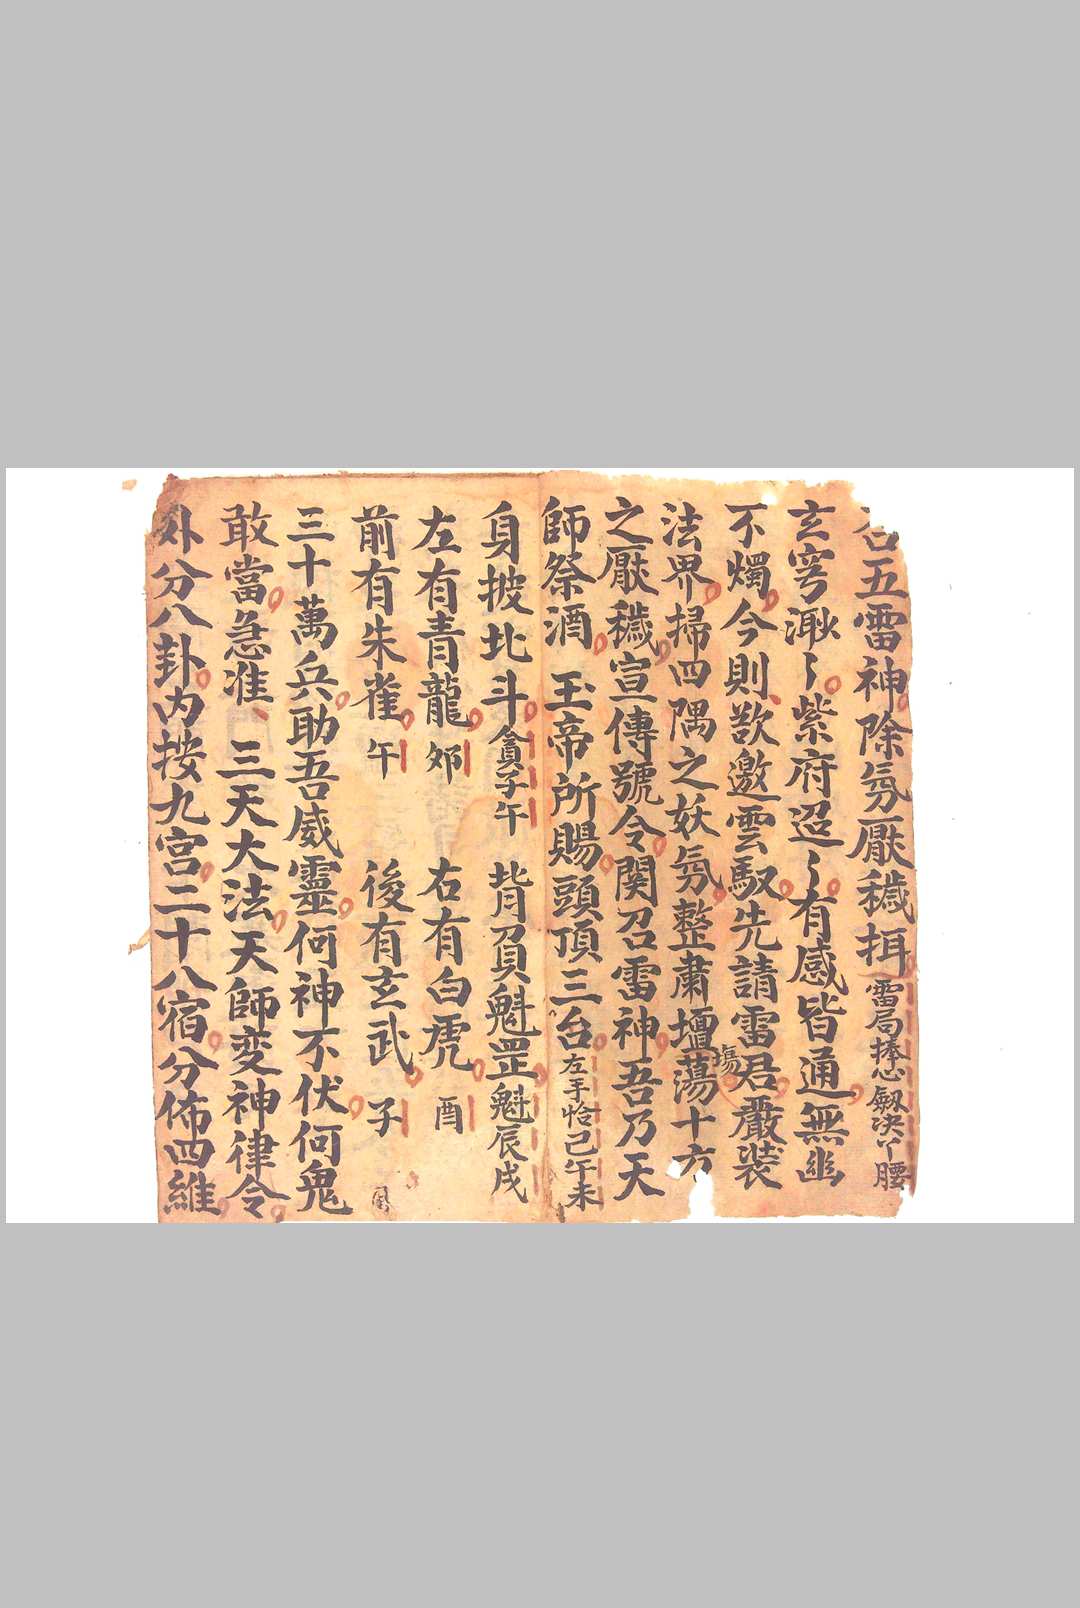 召五雷神除氛厭穢揖雷局捧心劔决丫腰
玄穹渺〻紫府迢〻有感皆通無幽
不燭今則欲邀雲馭先請雷君嚴裝
法界掃四隅之妖氛整肅壇蕩十方
塲
之厭穢宣傳號令関召雷神吾乃天
師祭酒 玉帝所賜頭頂三台左手恰己午未
身披北斗貪子午 背負魁罡魁辰戌
左有青龍夘 右有白虎酉
前有朱雀午 後有玄武子
三十萬兵助吾威靈何神不伏何鬼
敢當急准 三天大法天師变神律令
外分八卦内按九宫二十八宿分佈四維